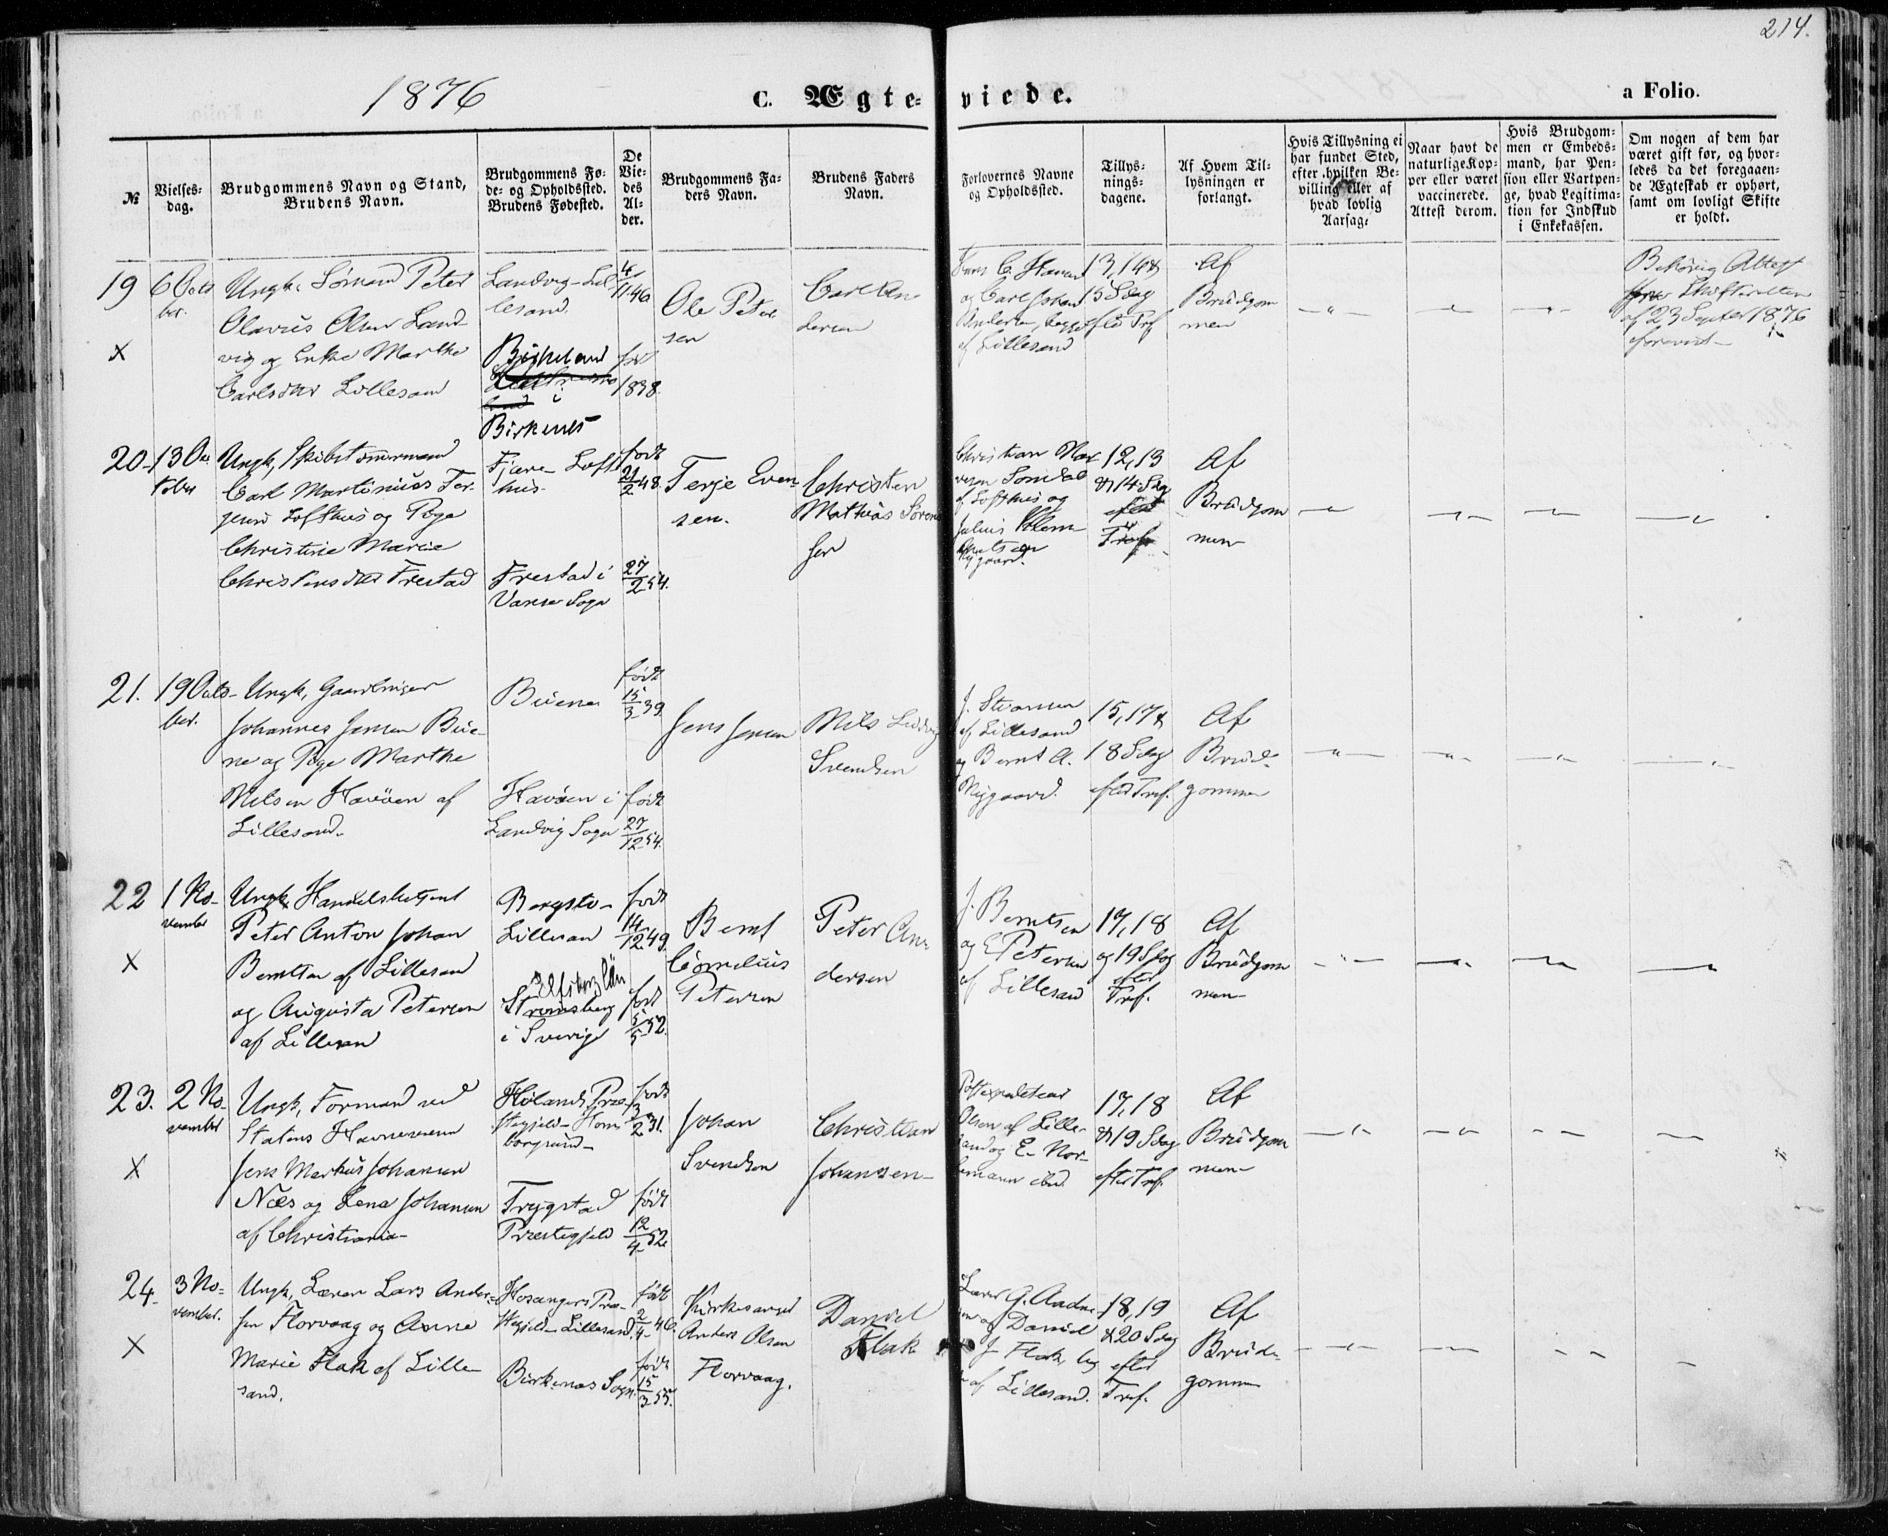 214.
1876
C. Ægte-
viede.
a Folio.
№
Vielses-
dag.
Brudgommens Navn og Stand,
Brudens Navn.
Brudgommens Fø-
de- og Opholdssted.
Brudens Fødested.
De
Vie-
des
Al-
der.
Brudgommens Fa-
ders Navn.
Brudens Faders
Navn.
Forlovernes Navne
og Opholdssted.
Tillys-
nings-
dagene.
Af Hvem Til-
lysningen er
forlangt.
Hvis Tillysning ei
har fundet Sted,
efter hvilken Be-
villing eller af
hvad lovlig
Aarsag.
Naar havt de
naturlige Kop-
per eller været
vaccinerede.
Attest derom.
Hvis Brudgom-
men er Embeds-
mand, har Pen-
sion eller Vartpen-
ge, hvad Legitima-
tion for Indskud
i Enkekassen.
Om nogen af dem har
været gift før, og hvor-
ledes da det foregaaen-
de Ægteskab er ophørt,
samt om lovligt Skifte
er holdt.
19
6 Octo
ber.
X
Ungk. Sømand Peter
Olavus Olsen Land-
vig og Enke Marthe
Carlsdtr Lillesand
Landvig - Lil-
lesand
Birkeland
i
Birkenes
4/11 46
født
1838.
Ole Peter
sen
Carl An
dersen
og Carl Johan
Andersen, begge
af Lillesand
13, 14 &
15 Sdag
efter Trf
Af
Brudgom
men
Behørig Attest
Skifteretten
af 23 Septer 1876
forevist
20-
13 Oc
tober
Ungk. Skibstømmermand
Carl Martinius Ter-
jesen Lofthus og Pige
Christine Marie
Christensdtr Frestad
Fjære - Loft
hus.
Frestad i
Vanse Sogn
født
21/2 48.
27/2 54.
Terje Even-
sen.
Christen
Mathias Sørens
sen
Christian
af Lofthus og
Julius
12, 13
& 14 Sdg
efter
Tref.
Af
Brudgom
men
21.
19 Octo-
ber.
Ungk, Gaardbruger
Johannes Jensen Bue-
ne og Pige Marthe
Nilsen Havöen af
Lillesand.
Buene
Havöen i
Landvig Sogn
født
15/3 39.
født
27/12 54.
Jens Jensen
Nils Ludvig
Svendsen
af Lillesand
og Bernt A.
Nygaard.
15, 17 &
18 Sdag
efter Tref.
Af
Brud-
gommen
22
1 No-
vember
X
Ungk. Handelsbetjent
Peter Anton Johan
Berntsen af Lillesand
og Augusta Petersen
af Lillesand
Lillesan
Elfsborg län
Strømsberg
i Sverige
født
14/12 49.
født
5/5 52.
Bernt
Cornelius
Petersen
Peter An-
dersen
J. Berntsen
og E Petersen
af Lillesand
17, 18
og 19 Sdag
efter
Tref.
Af
Brudgom
men
23.
2 No-
vember
X
Ungk, Formand ved
Statens Havnevesen
Jens Markus Johansen
Næs og Lena Johansen
af Christiania
Hølands Præ-
stegjeld - Hom-
borgsund-
Trygstad
Præstegjeld
født
3/2 31.
født
12/4 52
Johan
Svendsen
Christian
Johansen-
Postexpeditear
Olsen af Lille-
sand og E. Nor-
mann ibid
17, 18
& 19 Sdag
efter Tref.
Af
Brudgom
men
24.
3 No-
vember.
X
Ungk, Lærer Lars Ander-
sen Florvaag og Anne
Marie Flak af Lille-
sand.
Hosangers Præ-
stegjeld - Lillesand.
Birkenæs Sogn.
født
2/4 46.
født
15/3 55.
Kirkesanger
Anders Olsen
Florvaag.
Daniel
Flak
Lærer G. Ander
sen og Daniel
J Flak beg
ge af Lillesand.
18, 19
& 20 Sdag
efter
Tref.
Af
Brud-
gommen